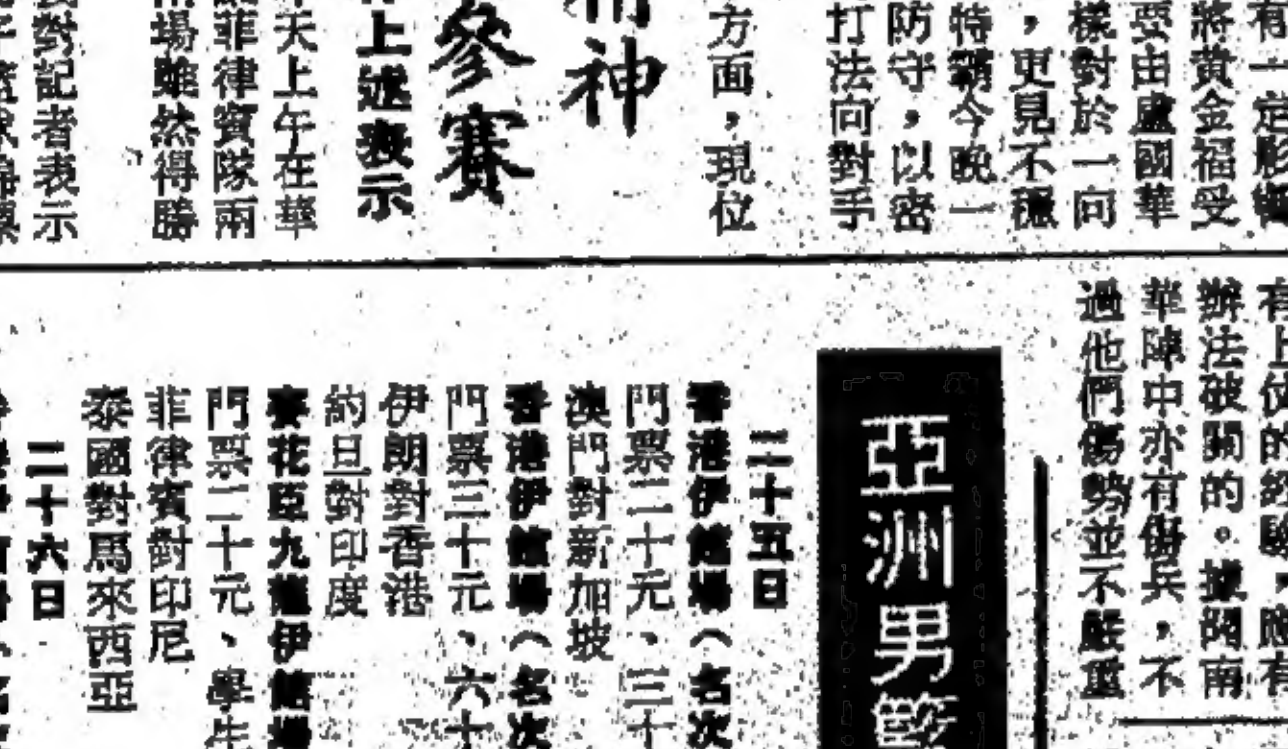 有一定影響
將黃金福受
受由盧國華
樣對於一向
，更見不穩
特霸今晚一
防守，以密
打法向對手
方面，現位
精神
參賽
上述表示
天上午在華
菲律賓隊兩
場雖然得勝
對記者表示
有上
辦法破關的。據閱南
華陣中亦有傷兵，不
過他們傷勢並不嚴重
亞洲男籃
二十五日
香港伊館場（名次
門票二十元、三十
澳門對新加坡
香港伊館場（名次
門票三十元、六十
伊朗對香港
約旦對印度
麥花臣九龍伊館場
門票二十元、學生
菲律賓對印尼
泰國對馬來西亞
二十六日